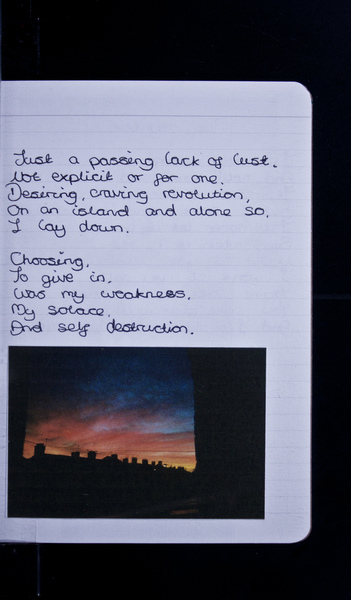 Just a passing lack of lust.
Not explicit or for one.
Desiring, craving revolution,
On an island and alone so,
I lay down.
Choosing,
To give in,
Was my weakness,
My solace,
And self destruction.